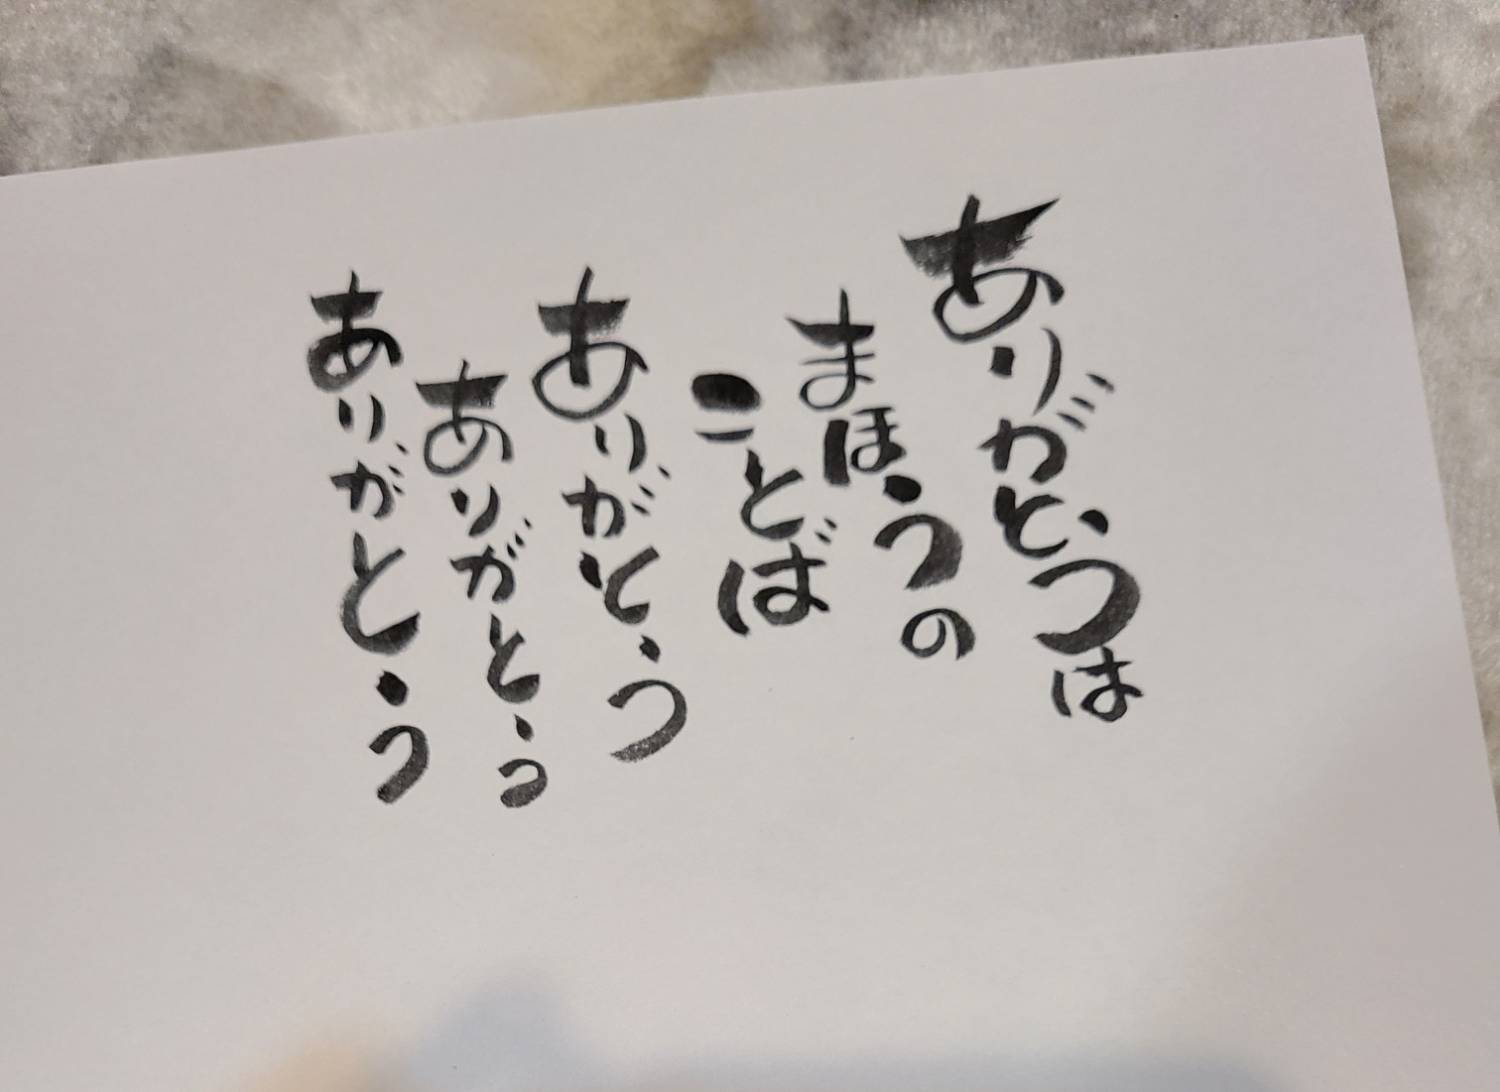 ありがとうは
まほうの
ことば
ありがとう
ありがとう
ありがとう